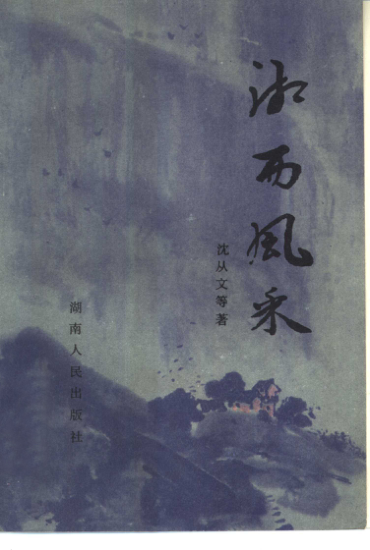 湘西風采
沈从文等著
湖南人民出版社